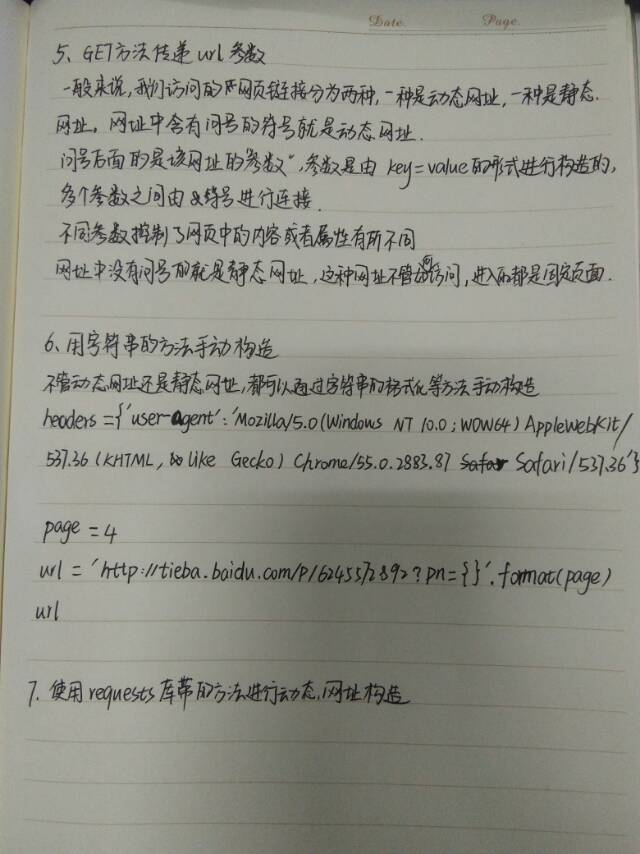 Date. Page.
5、GET方法传递url参数
一般来说,我们访问的网页链接分为两种,一种是动态网址,一种是静态
网址。网址中含有问号的符号就是动态网址.
问号后面的是该网址的"参数",参数是由 key=value的形式进行构造的,
多个参数之间由&符号进行连接.
不同参数控制了网页中的内容或者属性有所不同
网址中没有问号的就是静态网址,这种网址不管访问,进入的都是固定页面.
6、用字符串的方法手动构造
不管动态网址还是静态网址,都可以通过字符串的格式化等方法手动构造
headers={'user-agent':'Mozilla/5.0(Windows NT 10.0;WOW64)AppleWebKit/
537.36(KHTML, like Gecko) Chrome/55.0.2883.87 Safari/537.36'}
page=4
url='http://tieba.baidu.com/p/6245572892?pn={}'.format(page)
url
7、使用requests库带的方法进行动态网址构造